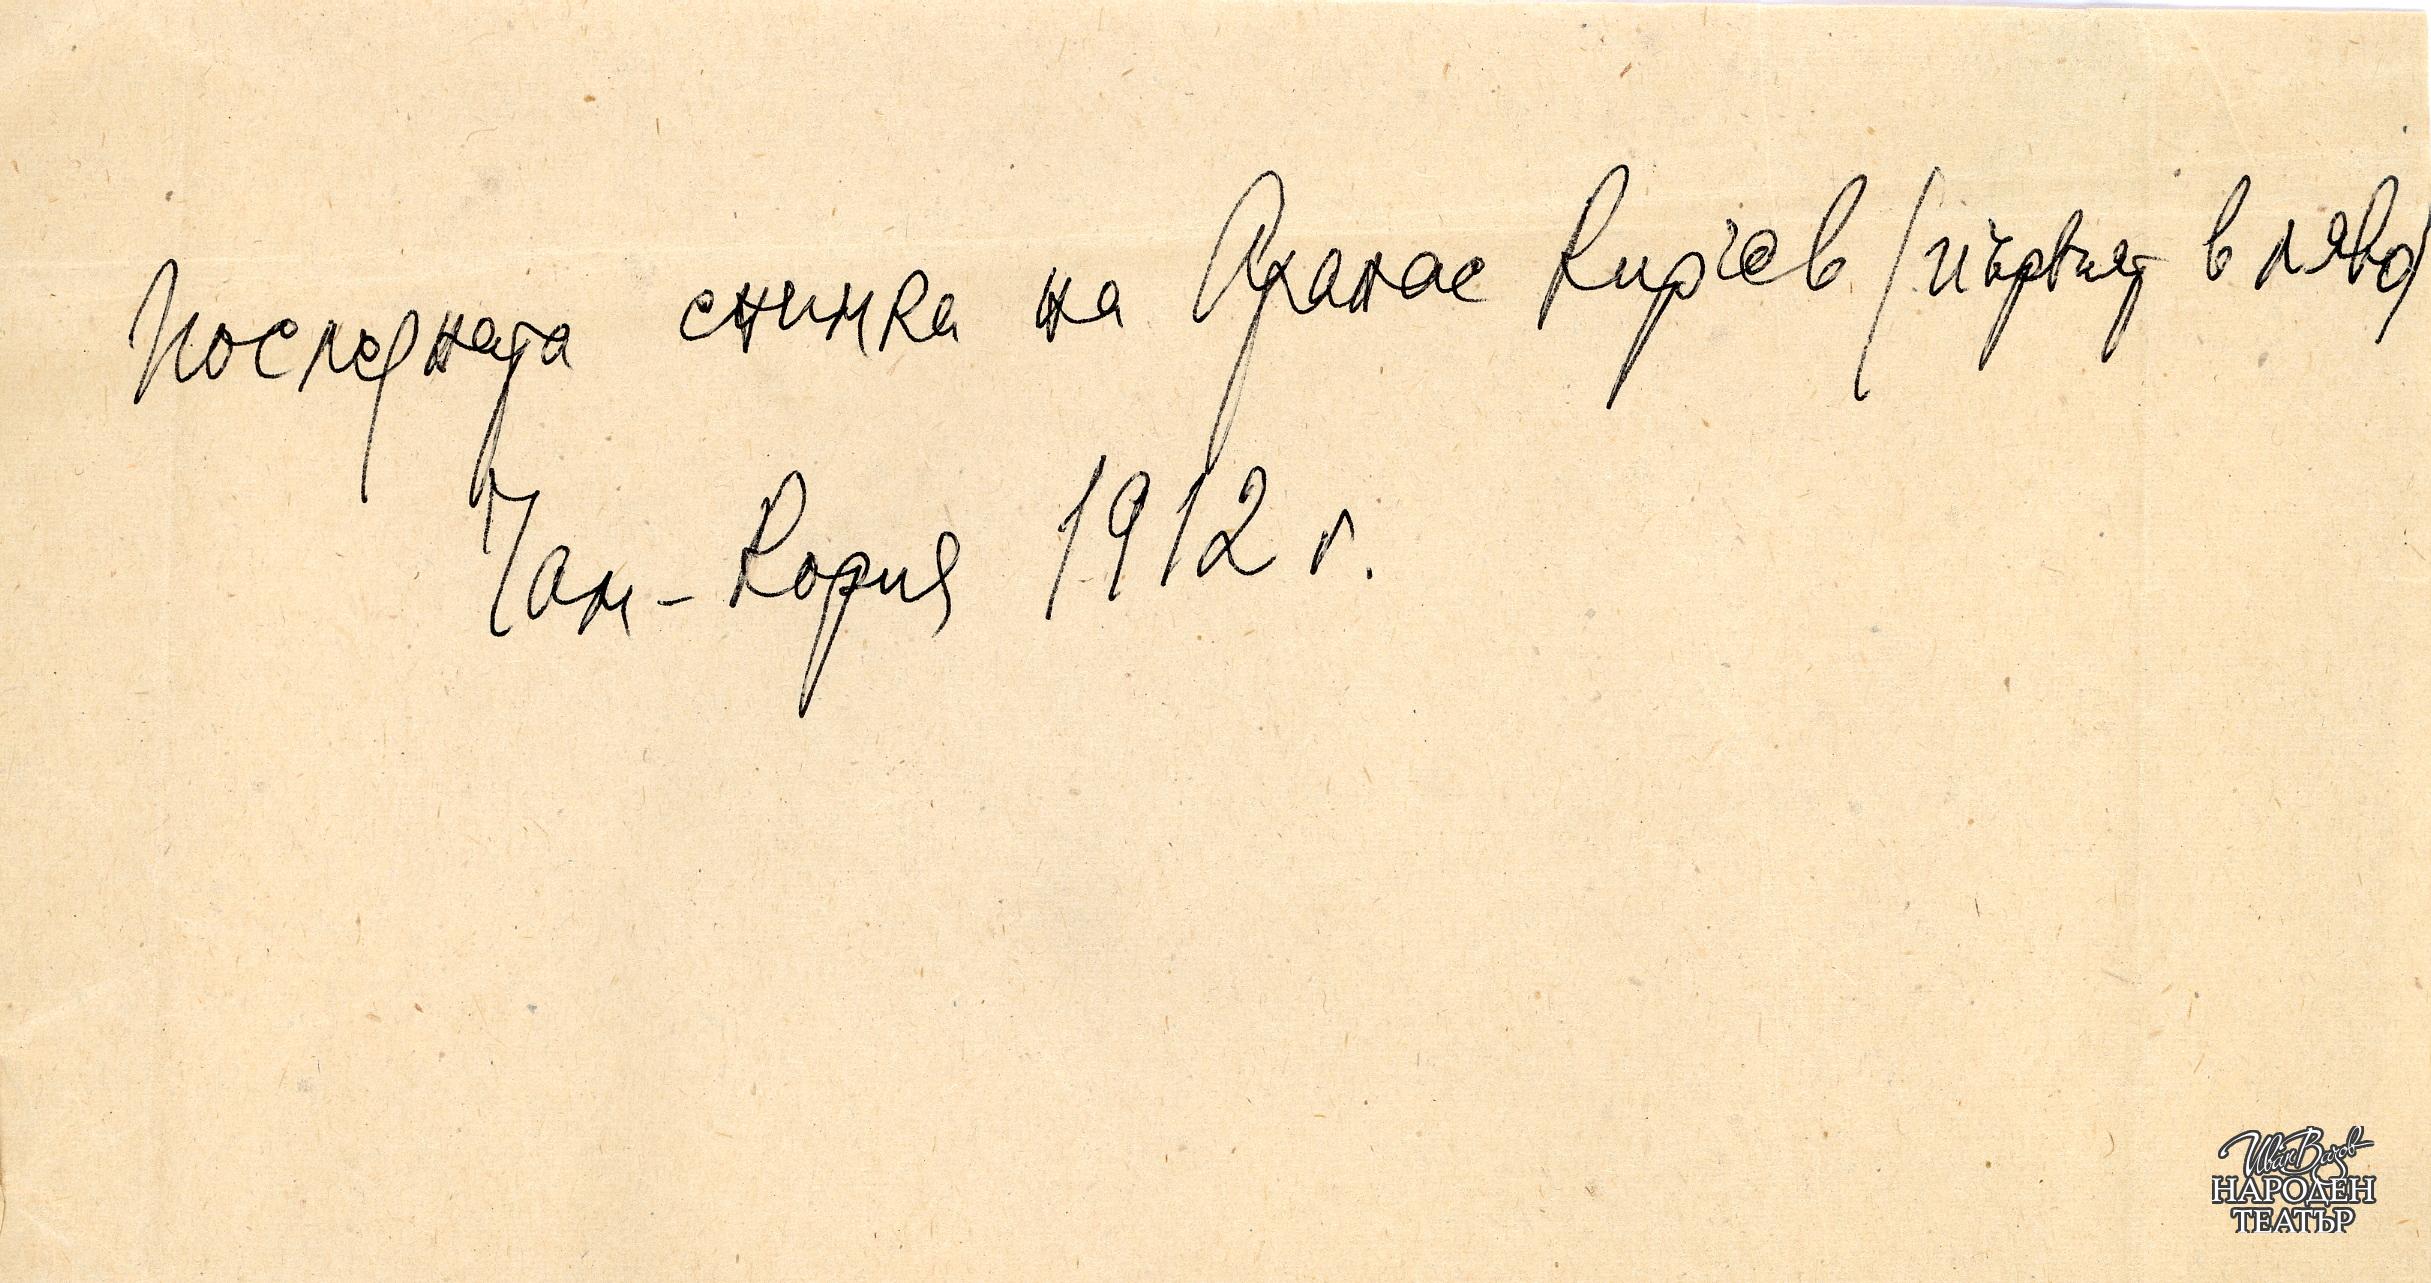 Последната снимка на Атанас Кирчев /първият в ляво/
Чам-Кория 1912 г.
Иван Вазов
НАРОДЕН
ТЕАТЪР